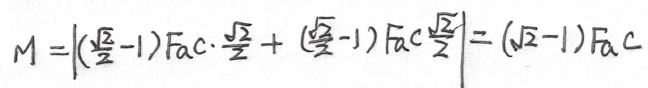 M = |(√2/2 - 1) Fac · √2/2 + (√2/2 - 1) Fac √2/2| = (√2 - 1) Fac